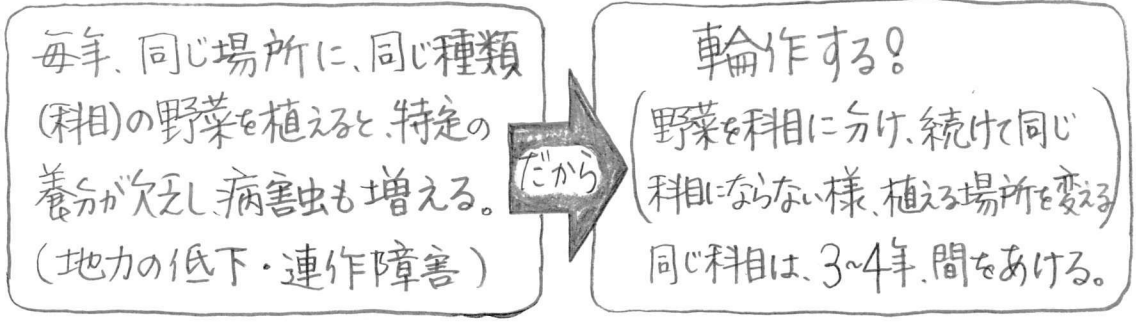 毎年、同じ場所に、同じ種類
(科目)の野菜を植えると、特定の
養分が欠乏し、病害虫も増える。
(地力の低下・連作障害)
だから
輪作する!
(野菜を科目に分け、続けて同じ
科目にならない様、植える場所を変える)
同じ科目は、3~4年、間をあける。